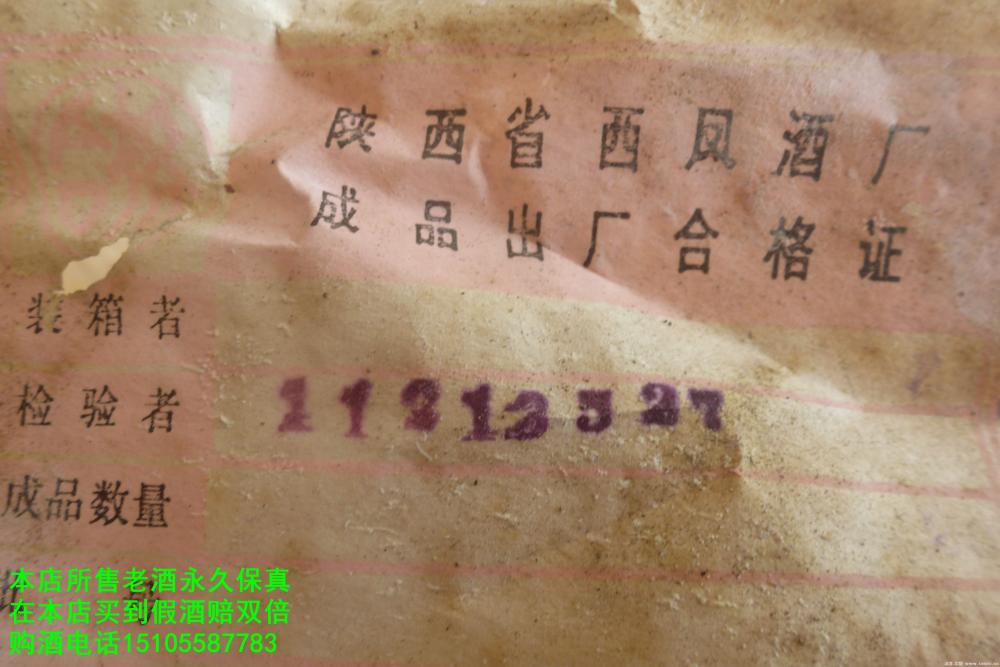 陕西省西凤酒厂
成品出厂合格证
装箱者
检验者 112123327
成品数量
本店所售老酒永久保真
在本店买到假酒赔双倍
购酒电话15105587783